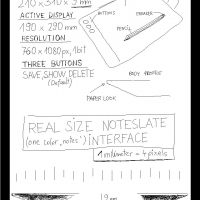 210 x 310 x 9 mm
ACTIVE DISPLAY
190 x 280 mm
RESOLUTION
760 x 1080 px, 1bit
THREE BUTTONS
SAVE, SHOW, DELETE
(Default)
BUTTONS
ERASER
PENCIL
BODY PROFILE
PAPER LOOK
REAL SIZE NOTESLATE
(one color "notes") INTERFACE
1 milimeter = 4 pixels